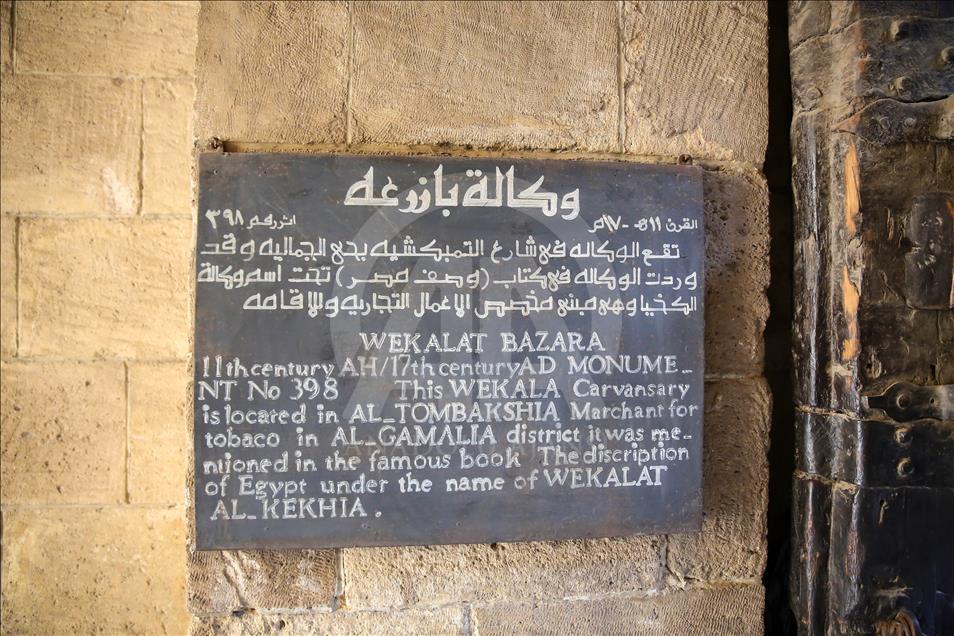 وكالة بازرعه
القرن ١١هـ-١٧م اثر رقم ٣٩٨
تقع الوكاله فى شارع التمبكشيه بحى الجماليه وقد
وردت الوكاله فى كتاب (وصف مصر) تحت اسم وكالة
الكخيا وهى مبنى مخصص للاعمال التجاريه وللاقامه
WEKALAT BAZARA
11th century AH/17th century AD MONUME_
NT No 398 This WEKALA Carvansary
is located in AL_TOMBAKSHIA Marchant for
tobaco in AL_GAMALIA district it was me-
ntioned in the famous book The discription
of Egypt under the name of WEKALAT
AL_KEKHIA.